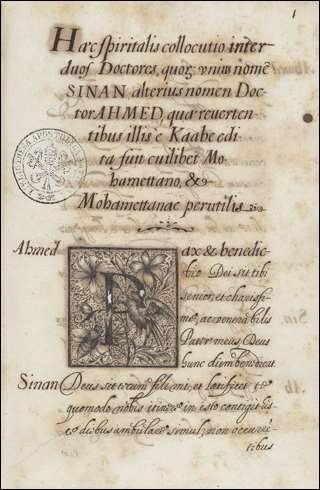 1
Hæc spiritalis collocutio inter
duos Doctores, quorꝫ vnius nomẽ
SINAN alterius nomen Doc-
tor AHMED, quæ reuerten-
tibus illis è Kaabe edi-
ta fuit cuilibet Mo-
hamettano, &
Mohamettanae perutilis
Ahmed Pax & benedic-
tio Dei sit tibi
senior, et charissi-
me, ac venerabilis
Pater meus, Deus
hunc diem benedicat.
Sinan Deus sit tecum fili mi, et lætificet te
quomodo nobis itinere in isto contigit us-
pedibus ambulare simul, non
tibus
Ahmed
Sin
Ah